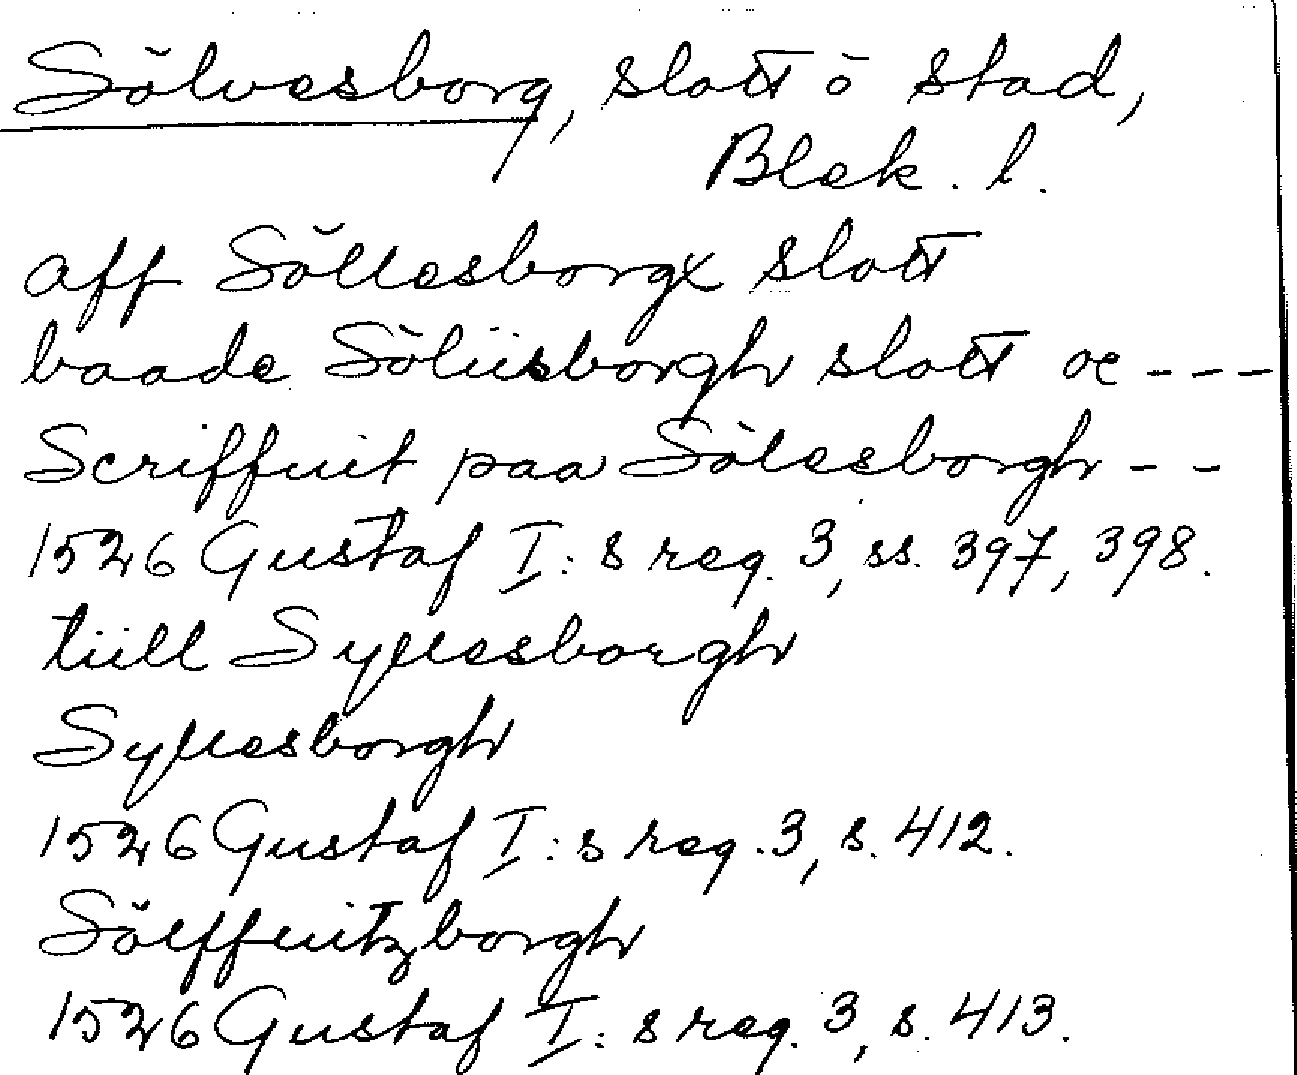 Sölvesborg, slott o stad,
Blek. l.
aff Söllesborgx slott
baade Sölüsborgh slott oc ---
Scriffuit paa Sölesborgh --
1526 Gustaf I:s reg. 3, ss. 397, 398.
tüll Syllesborgh
Syllesborgh
1526 Gustaf I:s reg. 3, s. 412.
Sölffuitzborgh
1526 Gustaf I:s reg. 3, s. 413.